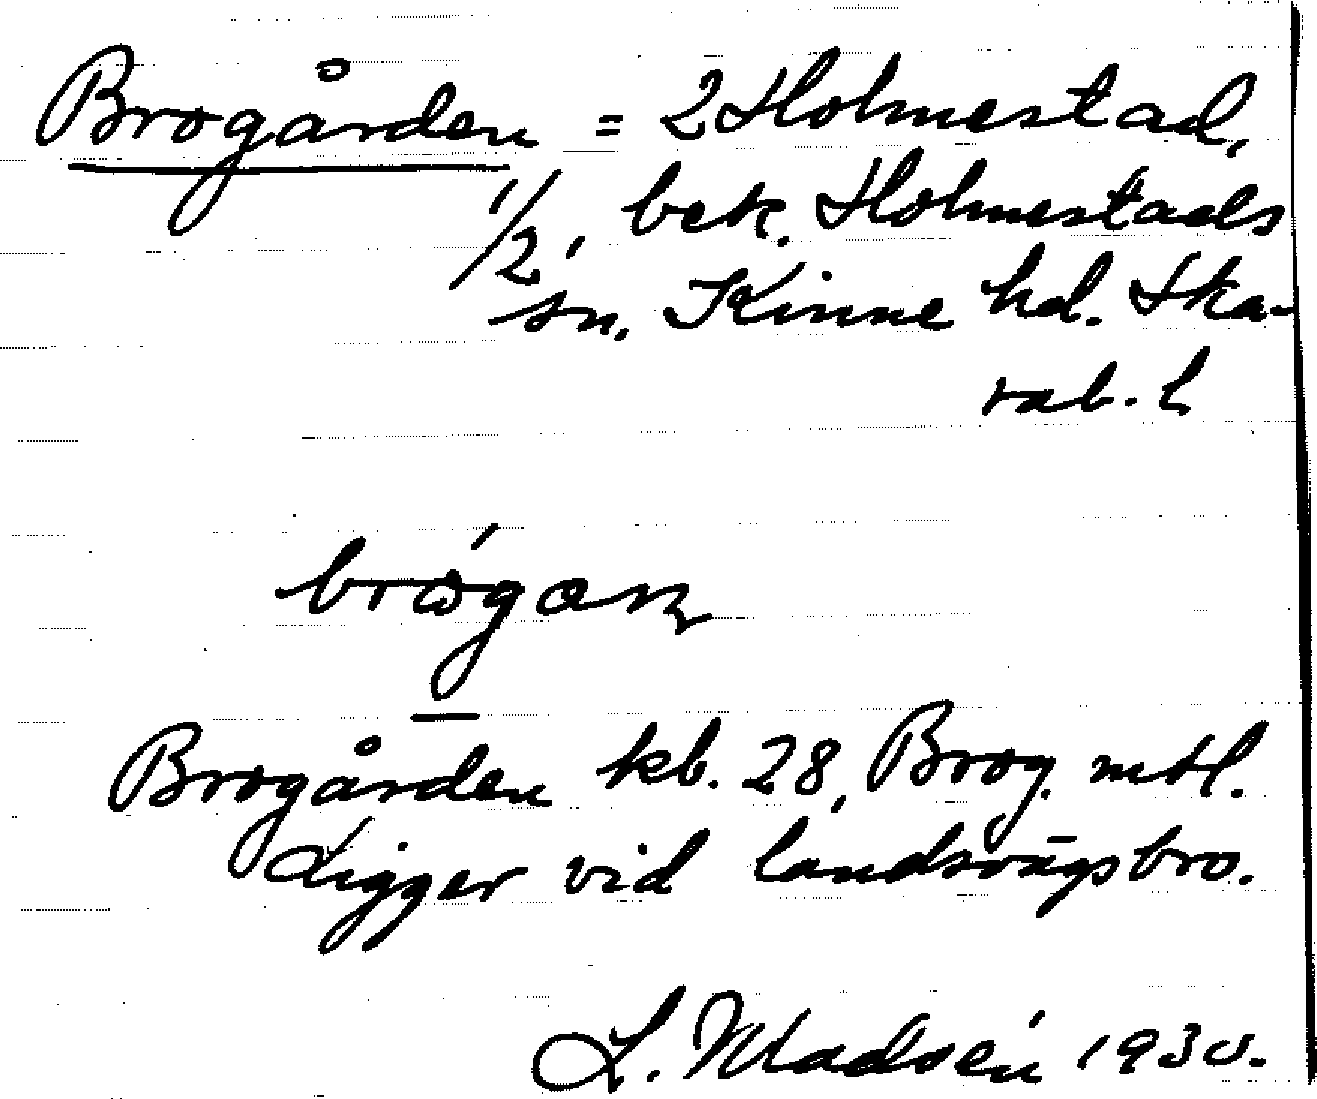 Brogården = 2 Holmestad,
1/2, bek. Holmestads
sn. Kinne hd. Ska-
rab. l
brógaṇ
Brogården kb. 28, Brog. mtl.
Ligger vid landsvägsbro.
L. Madsén 1930.